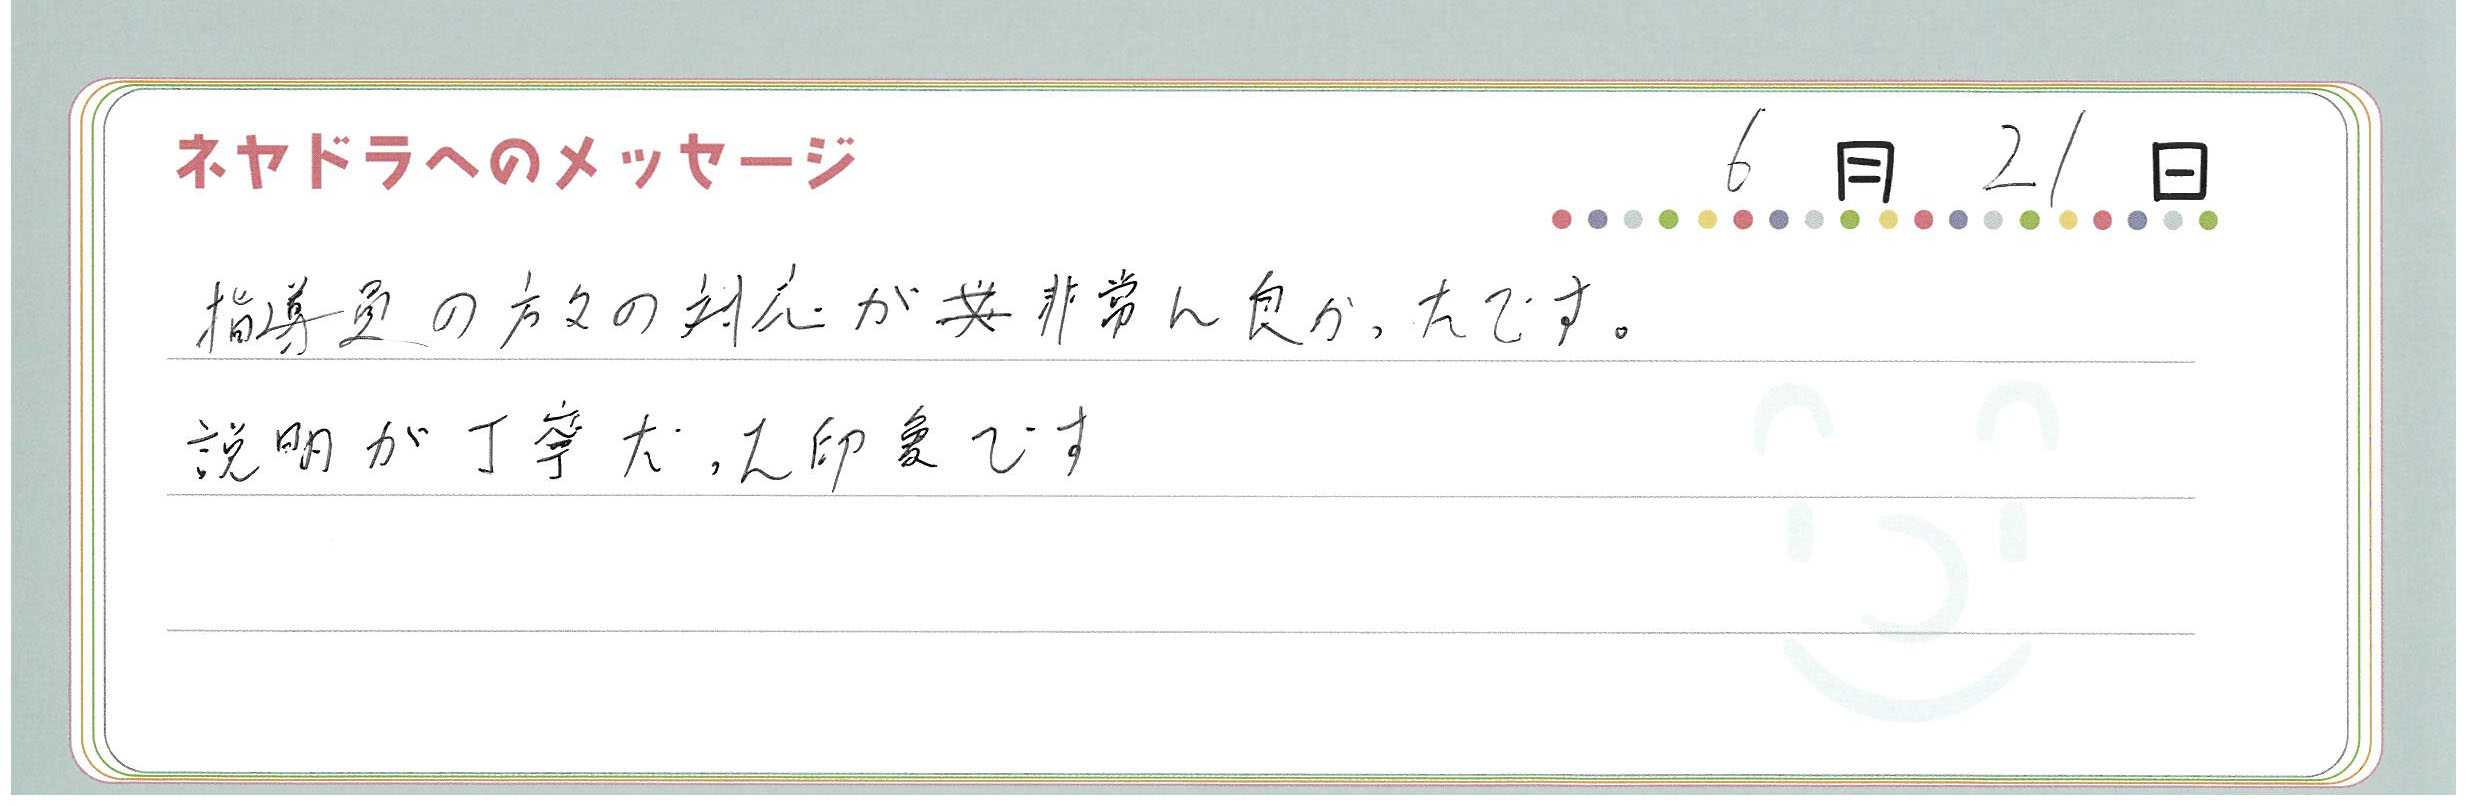 ネヤドラへのメッセージ
6月21日
指導員の方々の対応が非常に良かったです。
説明が丁寧だった印象です